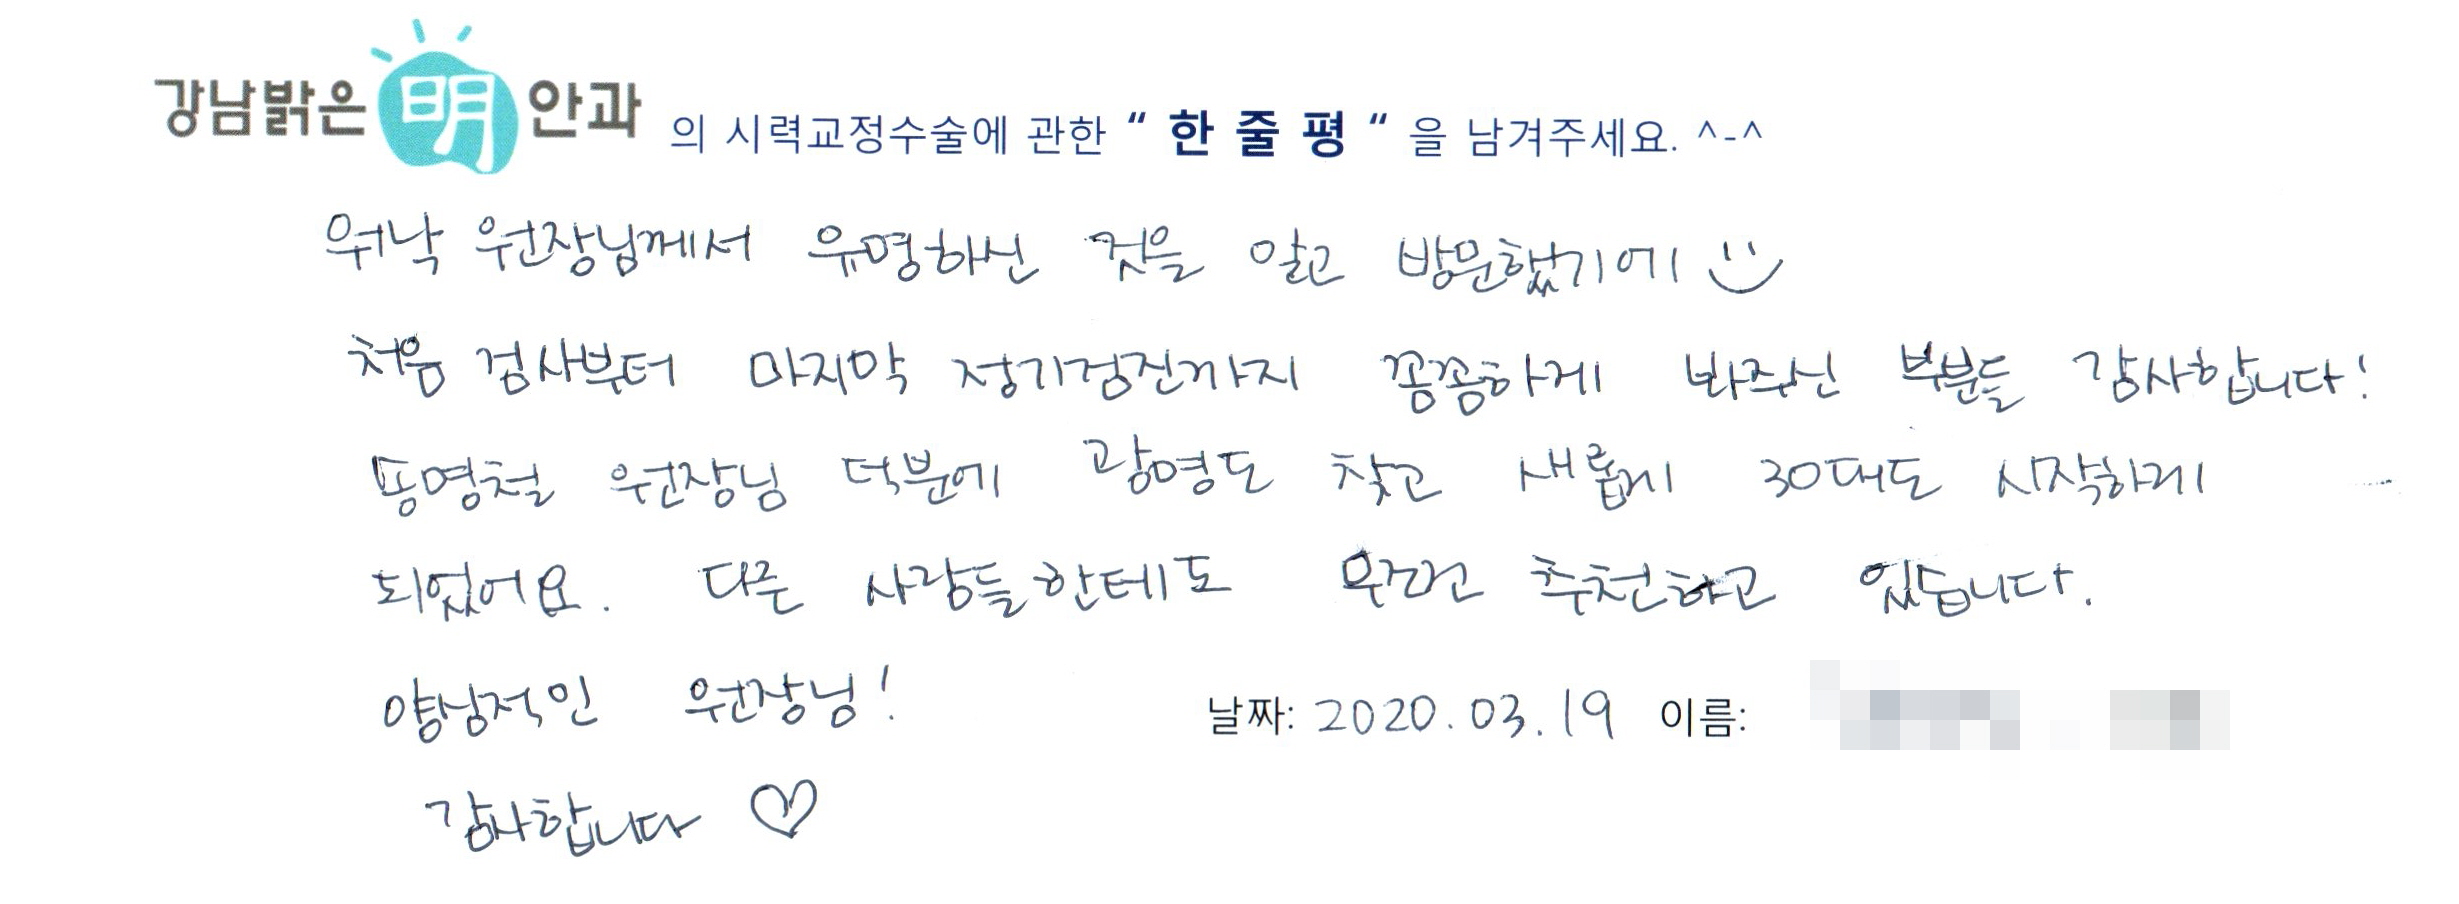 강남밝은 明 안과 의 시력교정수술에 관한 “ 한 줄 평 “ 을 남겨주세요. ^-^
워낙 원장님께서 유명하신 것을 알고 방문했기에
처음 검사부터 마지막 정기검진까지 꼼꼼하게 봐주신 부분들 감사합니다!
명철 원장님 덕분에 광명도 찾고 새롭게 30대도 시작하게
되었어요. 다른 사람들한테도 무조건 추천하고 있습니다.
양심적인 원장님!
날짜: 2020.03.19 이름:
감사합니다 ♡